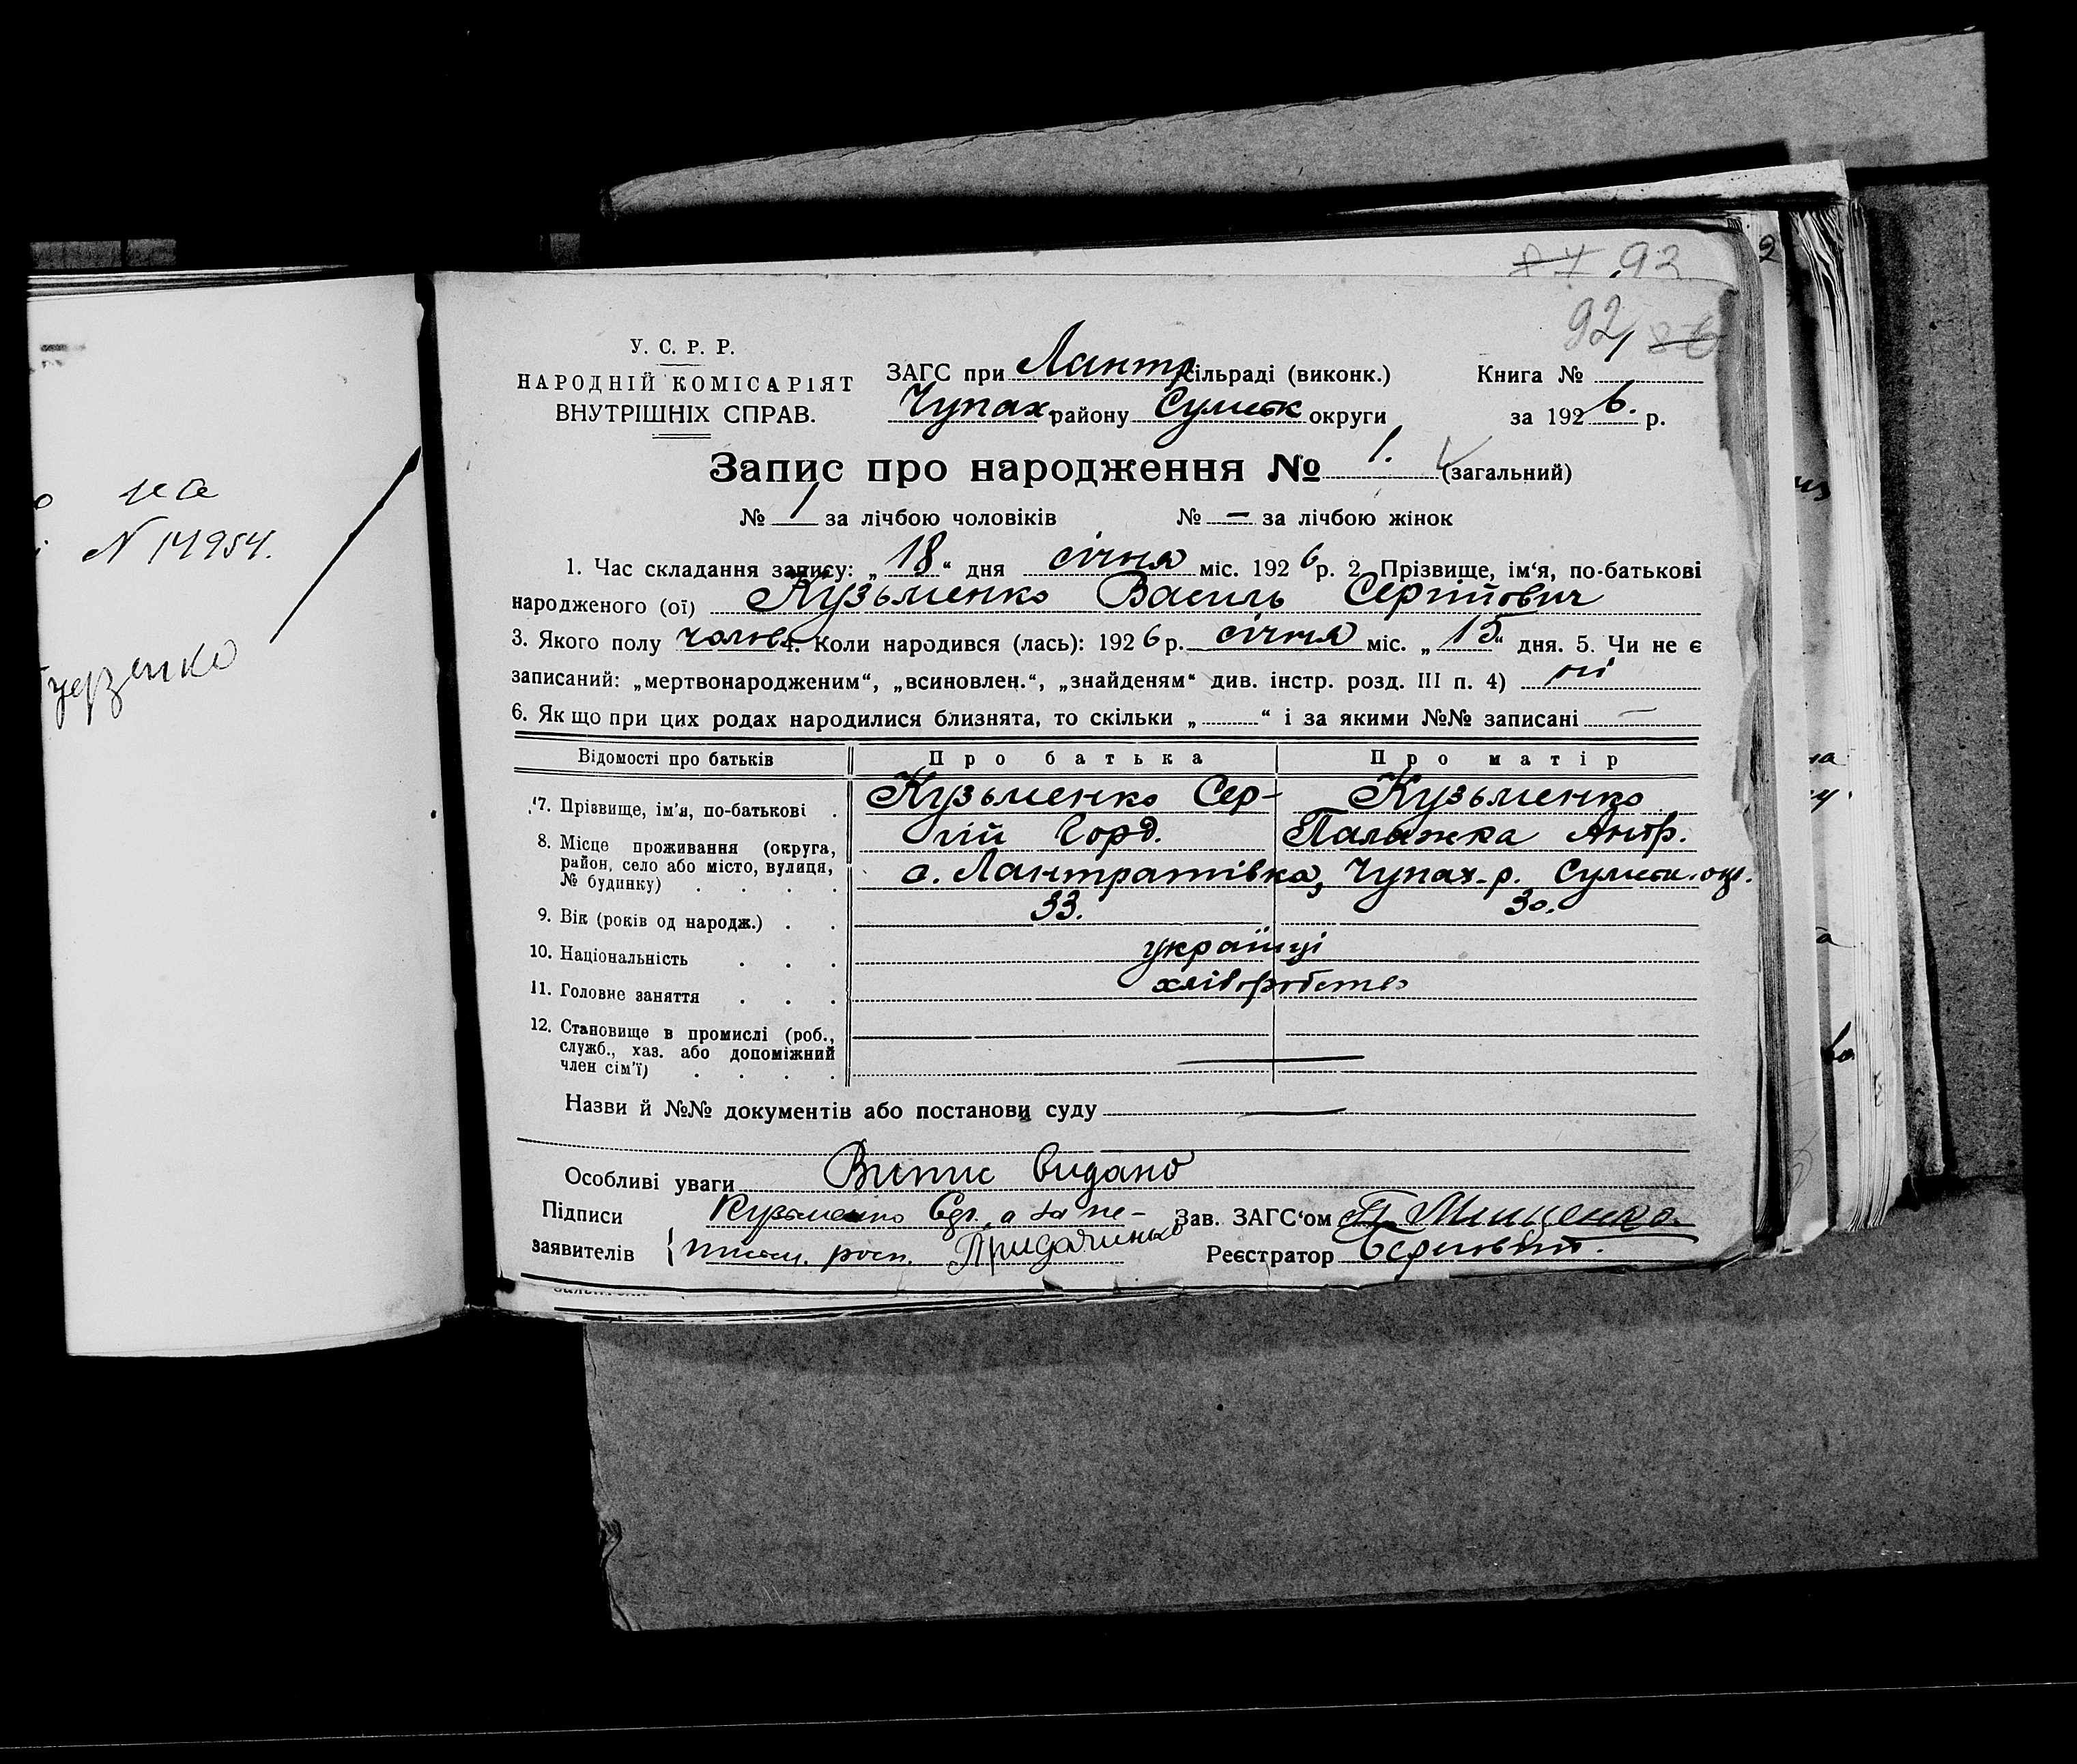 на
N 14954.
87 93
92 86
У. С. Р. Р.
НАРОДНІЙ КОМІСАРІЯТ
ВНУТРІШНІХ СПРАВ.
ЗАГС при Лантр сільраді (виконк.)
Чупах. району Сумськ округи
Книга №
за 1926. р.
Запис про народження № 1. (загальний)
№ 1 за лічбою чоловіків № — за лічбою жінок
1. Час складання запису: „ 18 “ дня січня міс. 1926 р. 2. Прізвище, ім‘я, по-батькові
народженого (ої) Кузьменко Василь Сергійович
3. Якого полу чолов. 4. Коли народився (лась): 1926 р. січня міс. „ 15 “ дня. 5. Чи не є
записаний: „мертвонародженим“, „всиновлен.“, „знайденям“ див. інстр. розд. III п. 4) ні
6. Якщо при цих родах народилися близнята, то скільки „ “ і за якими №№ записані —
Відомості про батьків Про батька Про матір
7. Прізвище, ім'я, по-батькові . Кузьменко Сер- Кузьменко
гій Горд. Палажка Андр.
8. Місце проживання (округа,
район, село або місто, вулиця,
№ будинку) . . . . с. Лантратівка, Чупах. р. Сумськ. окр.
9. Вік (років од народж.) . . 33. 30.
10. Національність . . . українці
11. Головне заняття . . . хліборобство
12. Становище в промислі (роб.,
служб., хаз. або допоміжний
член сім'ї) . . . . —
Назви й №№ документів або постанови суду —
Особливі уваги Витис видано
Підписи
заявителів { Кузьменко а за не-
письм. росп.
Зав. ЗАГС‘ом П. Мищенко
Реєстратор